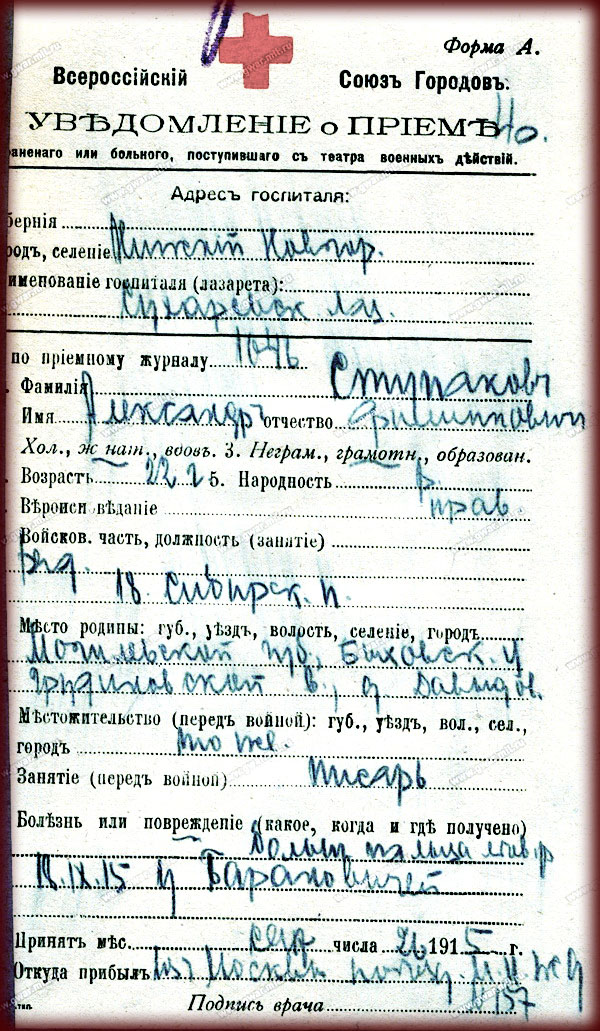 Форма А.
Всероссійскій Союзъ Городовъ.
УВѢДОМЛЕНІЕ о ПРІЕМѢ
раненаго или больного, поступившаго съ театра военныхъ дѣйствій.
Адресъ госпиталя:
бернія
родъ, селеніе Нижній Новгор.
именованіе госпиталя (лазарета):
по пріемному журналу 1046
Фамилія Ступаковъ
Имя Александръ отчество Филипповичъ
Хол., женат., вдовъ. 3. Неграм., грамотн., образован.
Возрастъ 22 л 5. Народность р.
Вѣроисповѣданіе прав.
Войсков. часть, должность (занятіе)
ряд.
18 Сибирск. п.
Мѣсто родины: губ., уѣздъ, волость, селеніе, городъ
Могилевской губ., Быховск. у
Грудиновской в., д Давыдов.
Мѣстожительство (передъ войной): губ., уѣздъ, вол., сел.,
городъ то же.
Занятіе (передъ войной) писарь
Болѣзнь или поврежденіе (какое, когда и гдѣ получено)
больш пальца
18.IX.15 у Барановичей
Принятъ мѣс. сент числа 26 1915 г.
Откуда прибылъ Изъ Москвы М.Н.ж.д
№157
Подпись врача